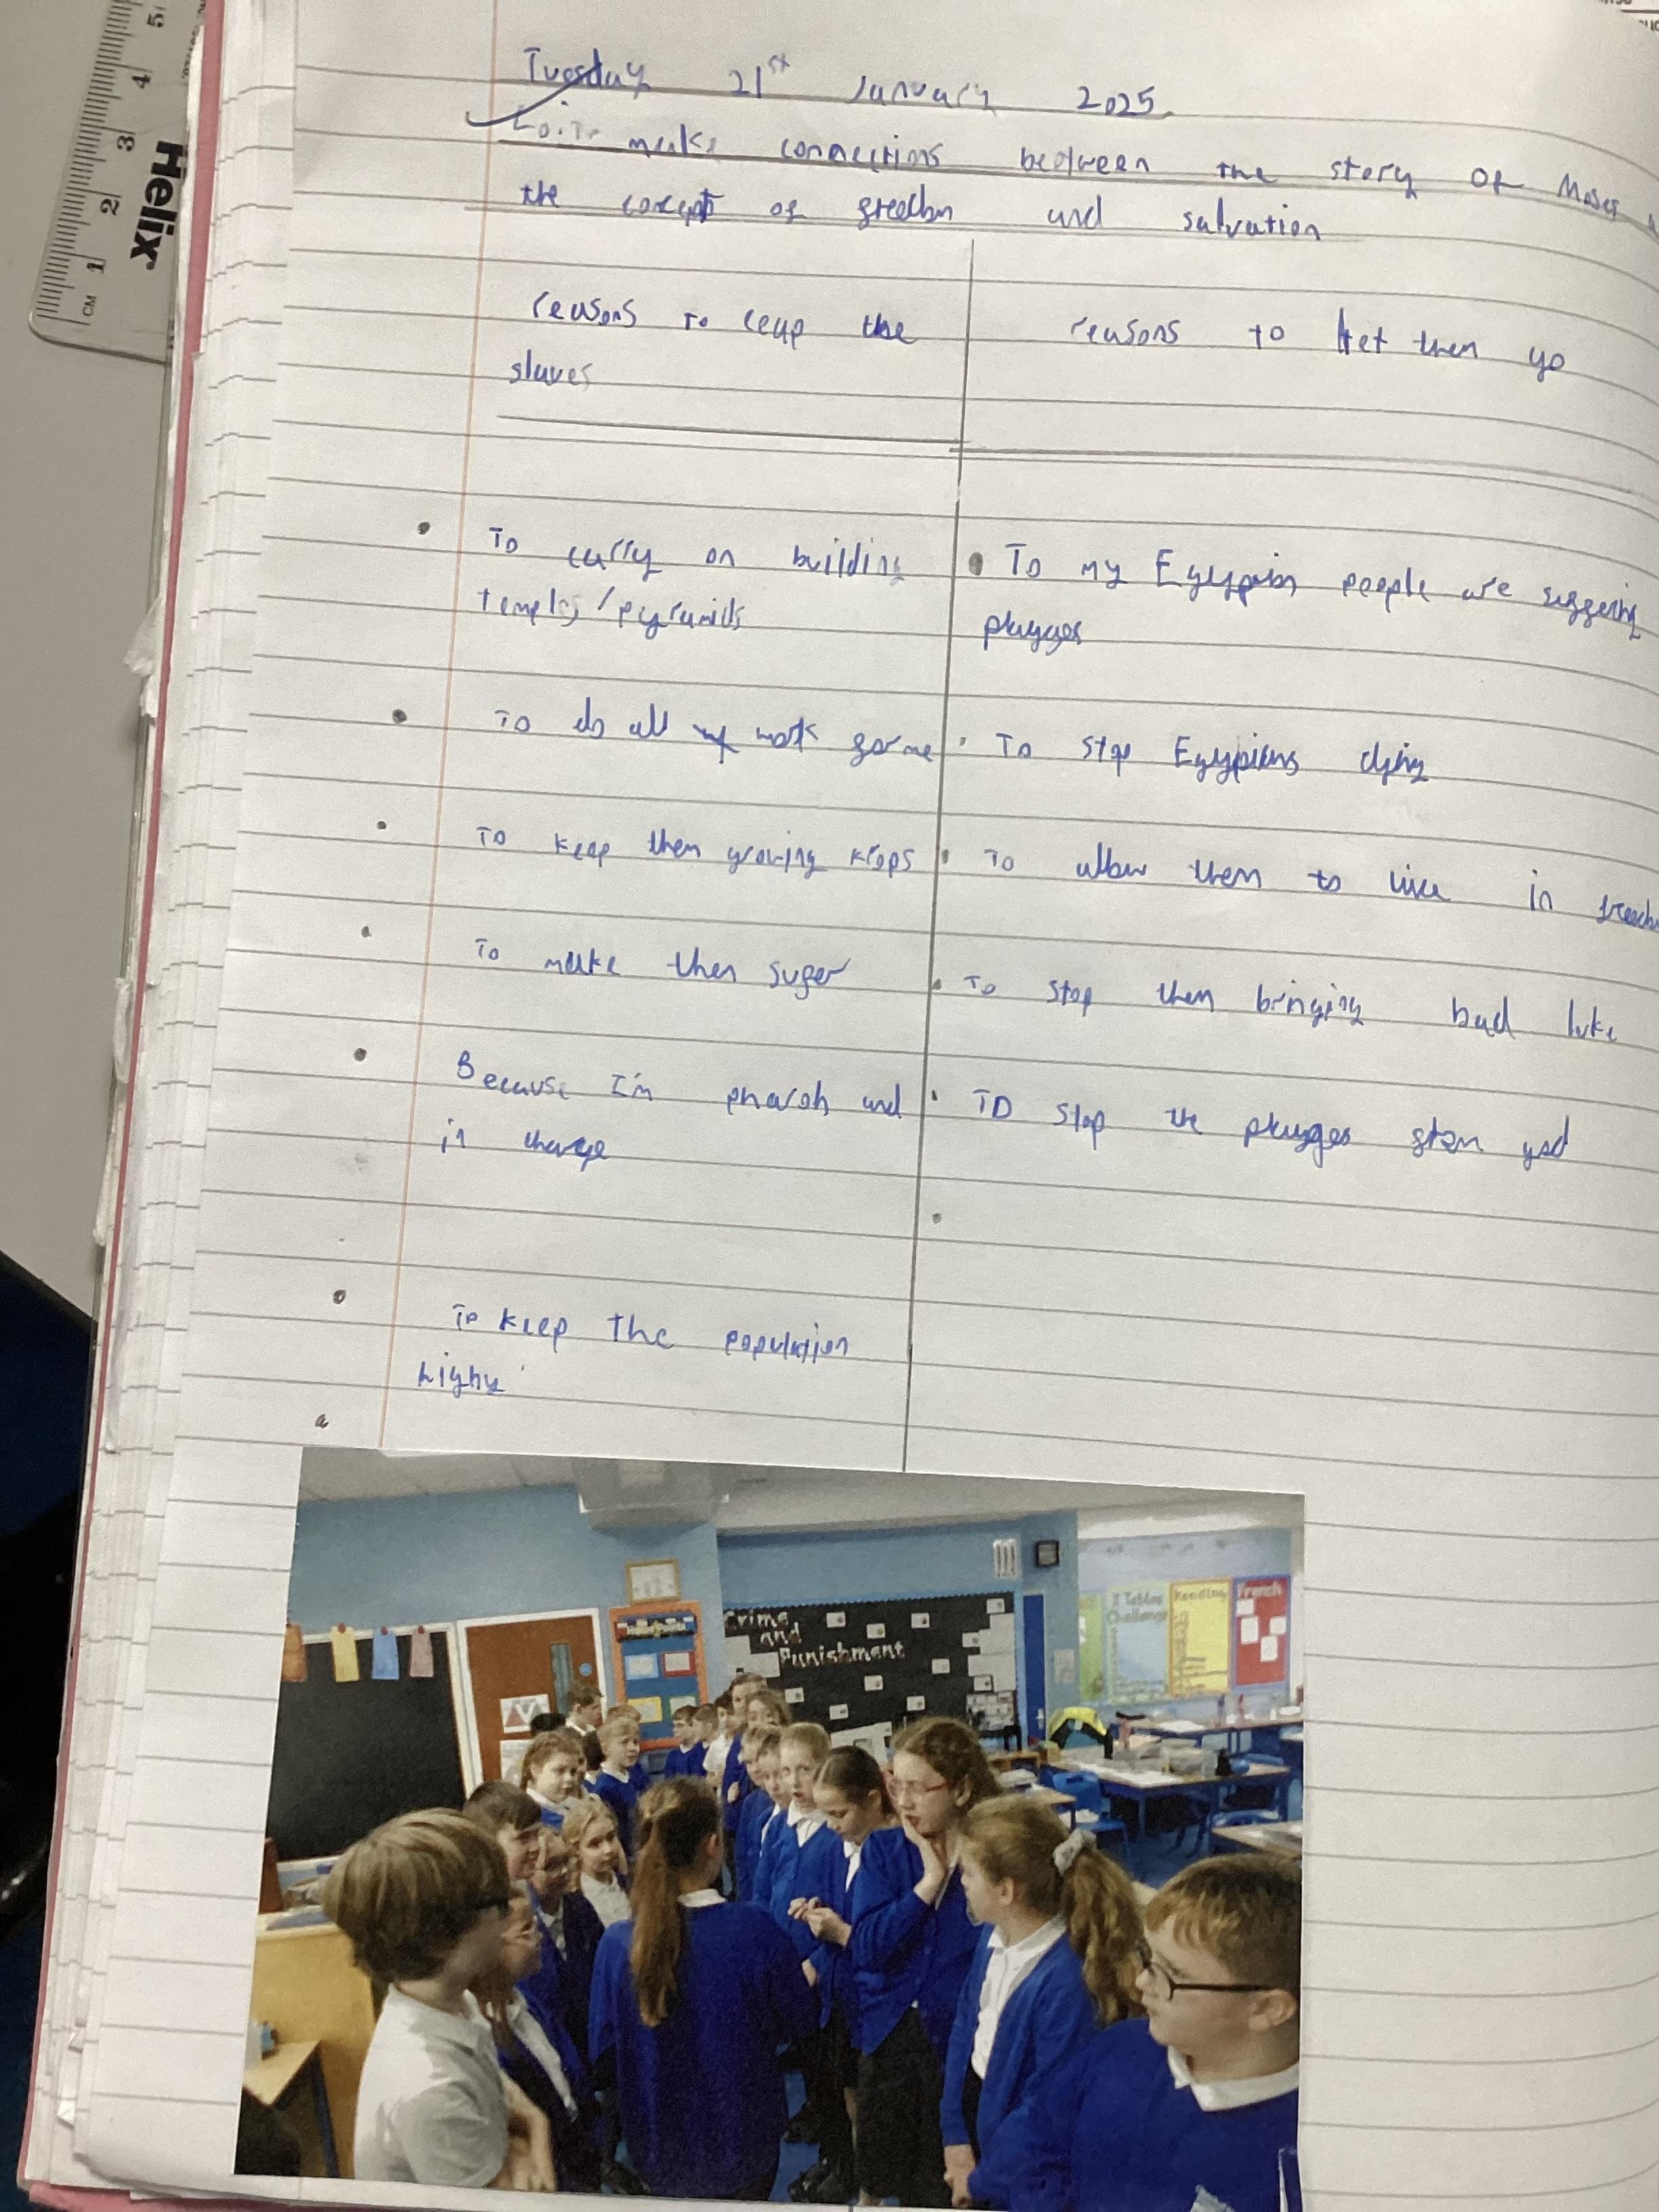 Tuesday 21st January 2025
make connections between the story of Moses
the concept of freedom and salvation
reasons to ceap the
slaves
reasons to let them go
To carry on building
temples/pyramids
To do all work for me
To keep them growing krops
To make them sufer
Because I'm pharoh and
in charge
To keep the population
highy
To my Egyptian people are suffering
plagges
To stop Egypians dying
To allow them to live in
To stop them bringing bad luke
To stop the plagges from god
Crime
and
Punishment
X Tables
Challenge
Reading
French
Helix
CM 1 2 3 4 5